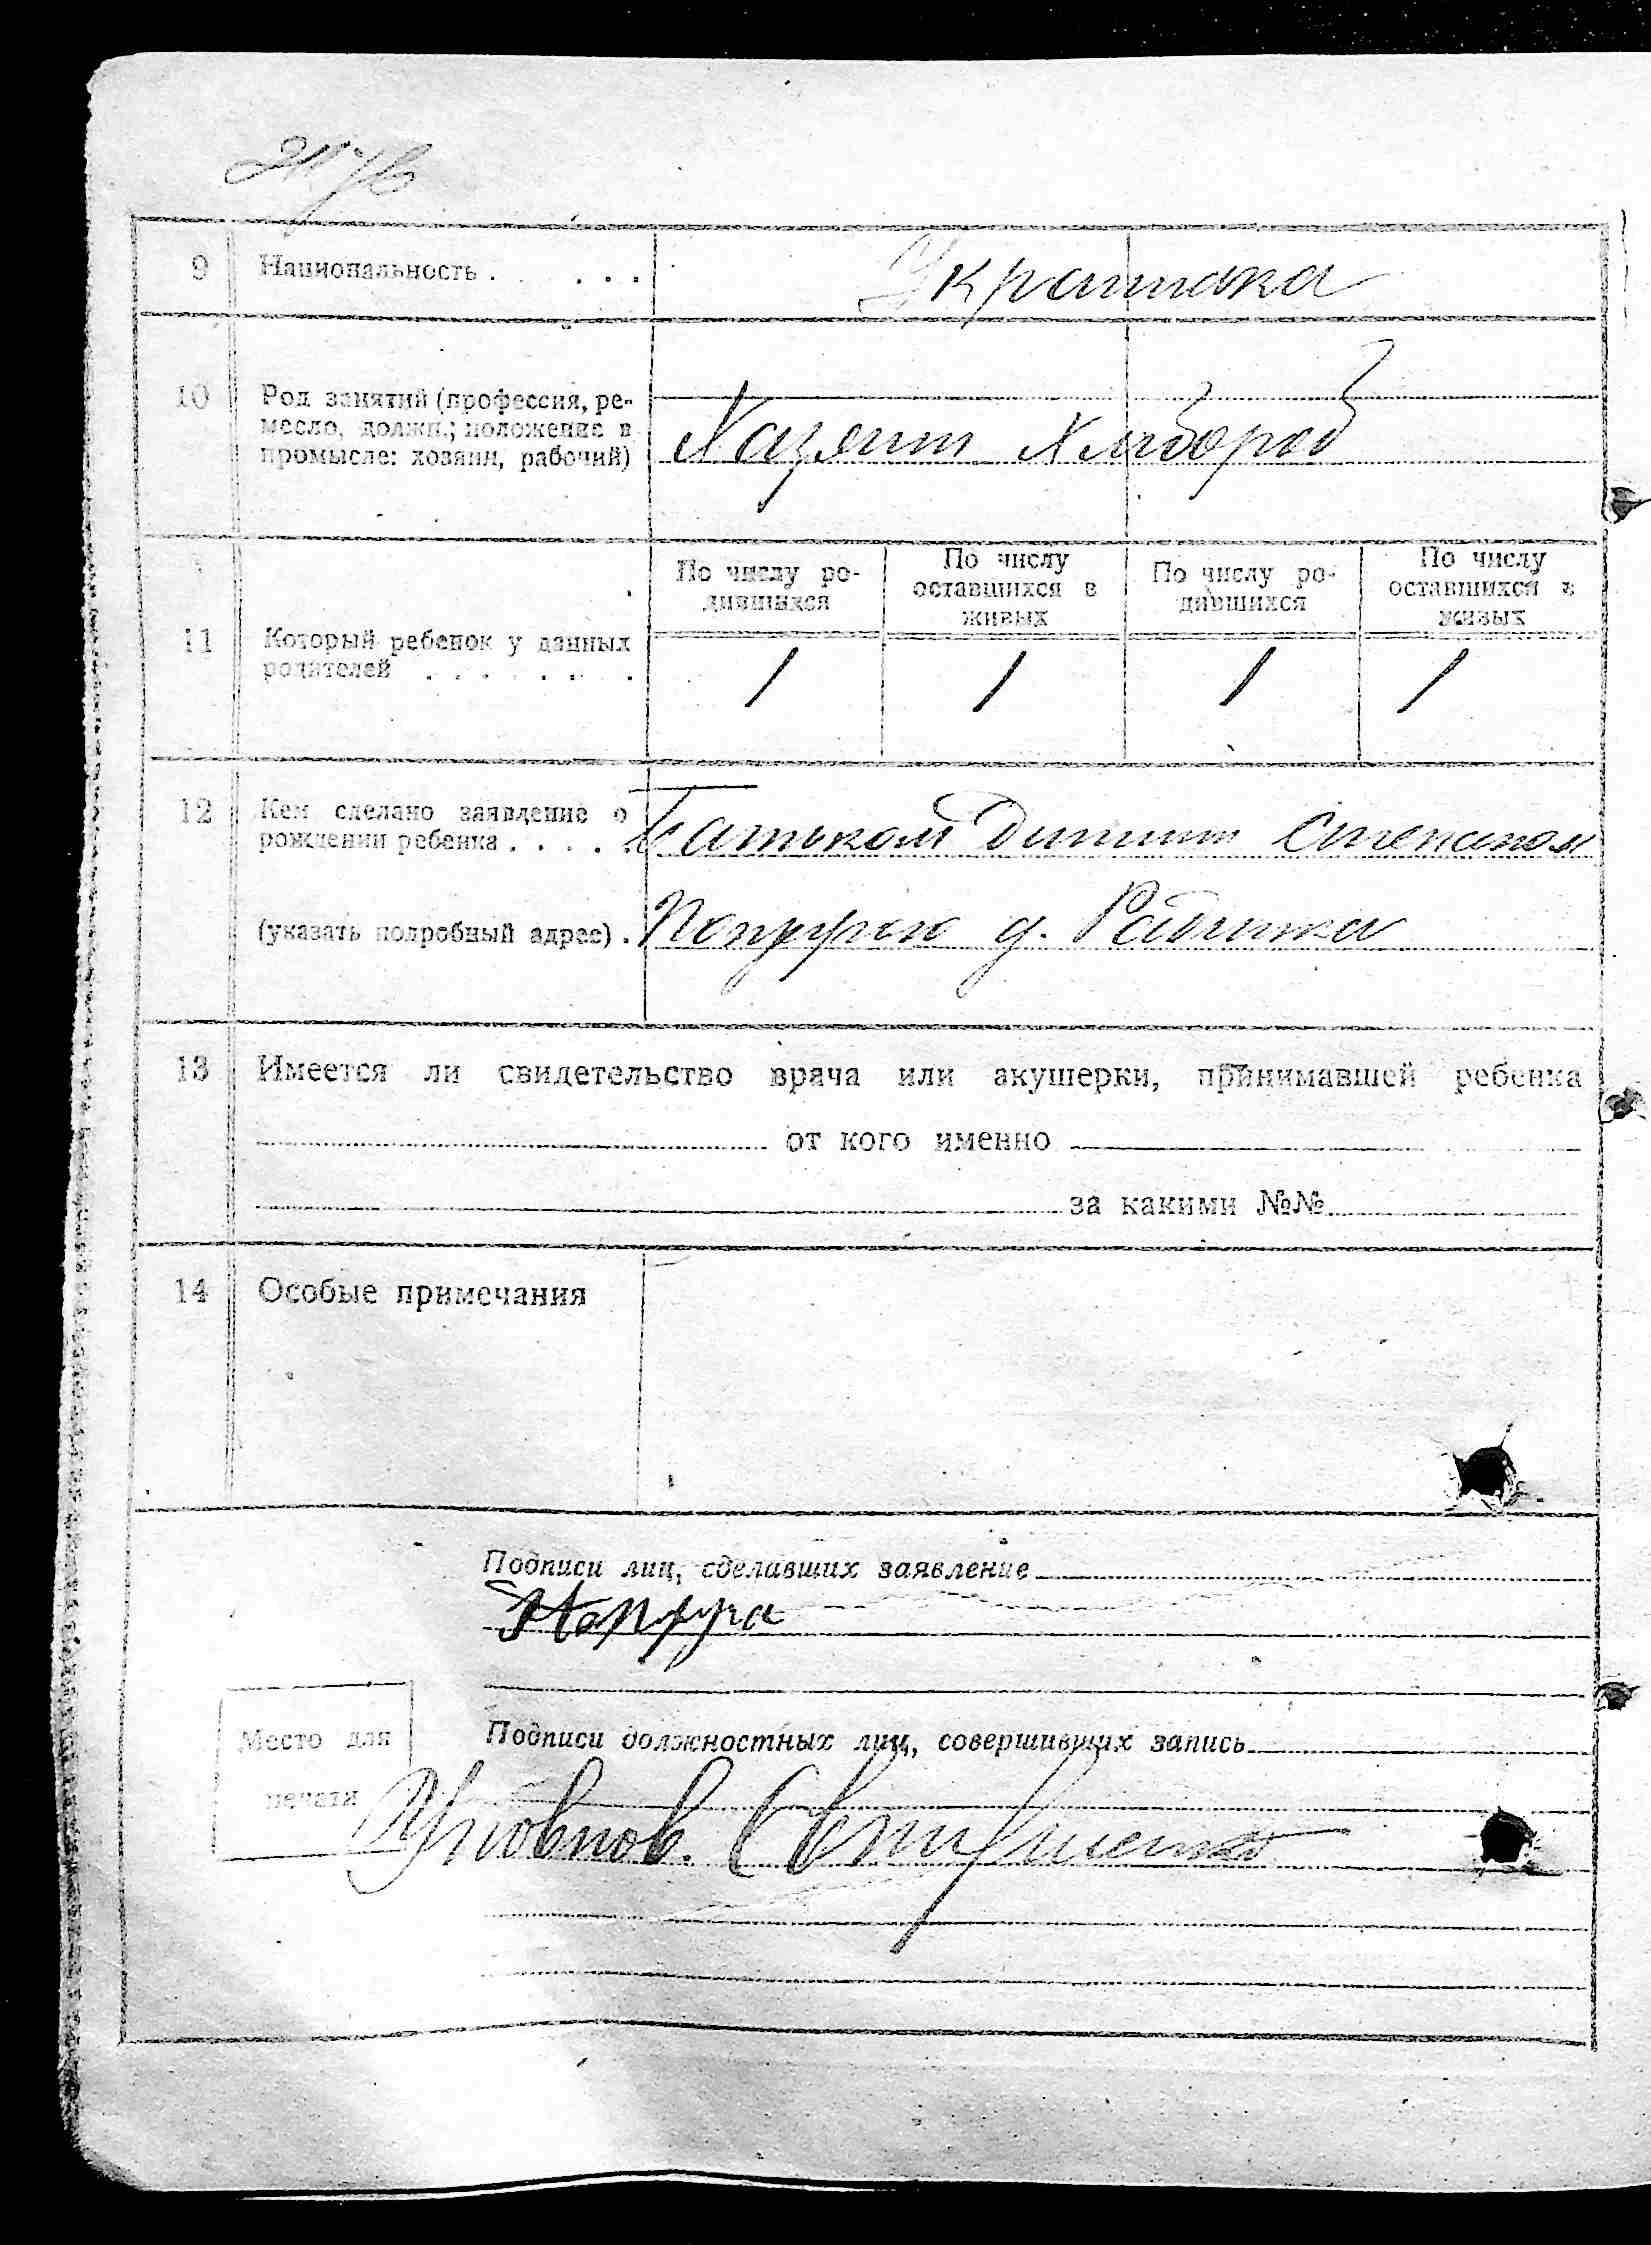 9 Национальность . . . . .
Украинка
10 Род занятий (профессия, ре-
месло, должн.; положение в
промысле: хозяин, рабочий)
Хазяит Хлибороб
По числу ро-
дившихся
По числу
оставшихся в
живых
По числу ро-
дившихся
По числу
оставшихся в
живых
11 Который ребенок у данных
родителей . . . . . . .
1 1 1 1
12 Кем сделано заявление о
рождении ребенка . . . . .
Батьком Степаном
(указать подробный адрес) .
13 Имеется ли свидетельство врача или акушерки, принимавшей ребенка
от кого именно
за какими №№
14 Особые примечания
Подписи лиц, сделавших заявление
Место для
печати
Подписи должностных лиц, совершивших запись